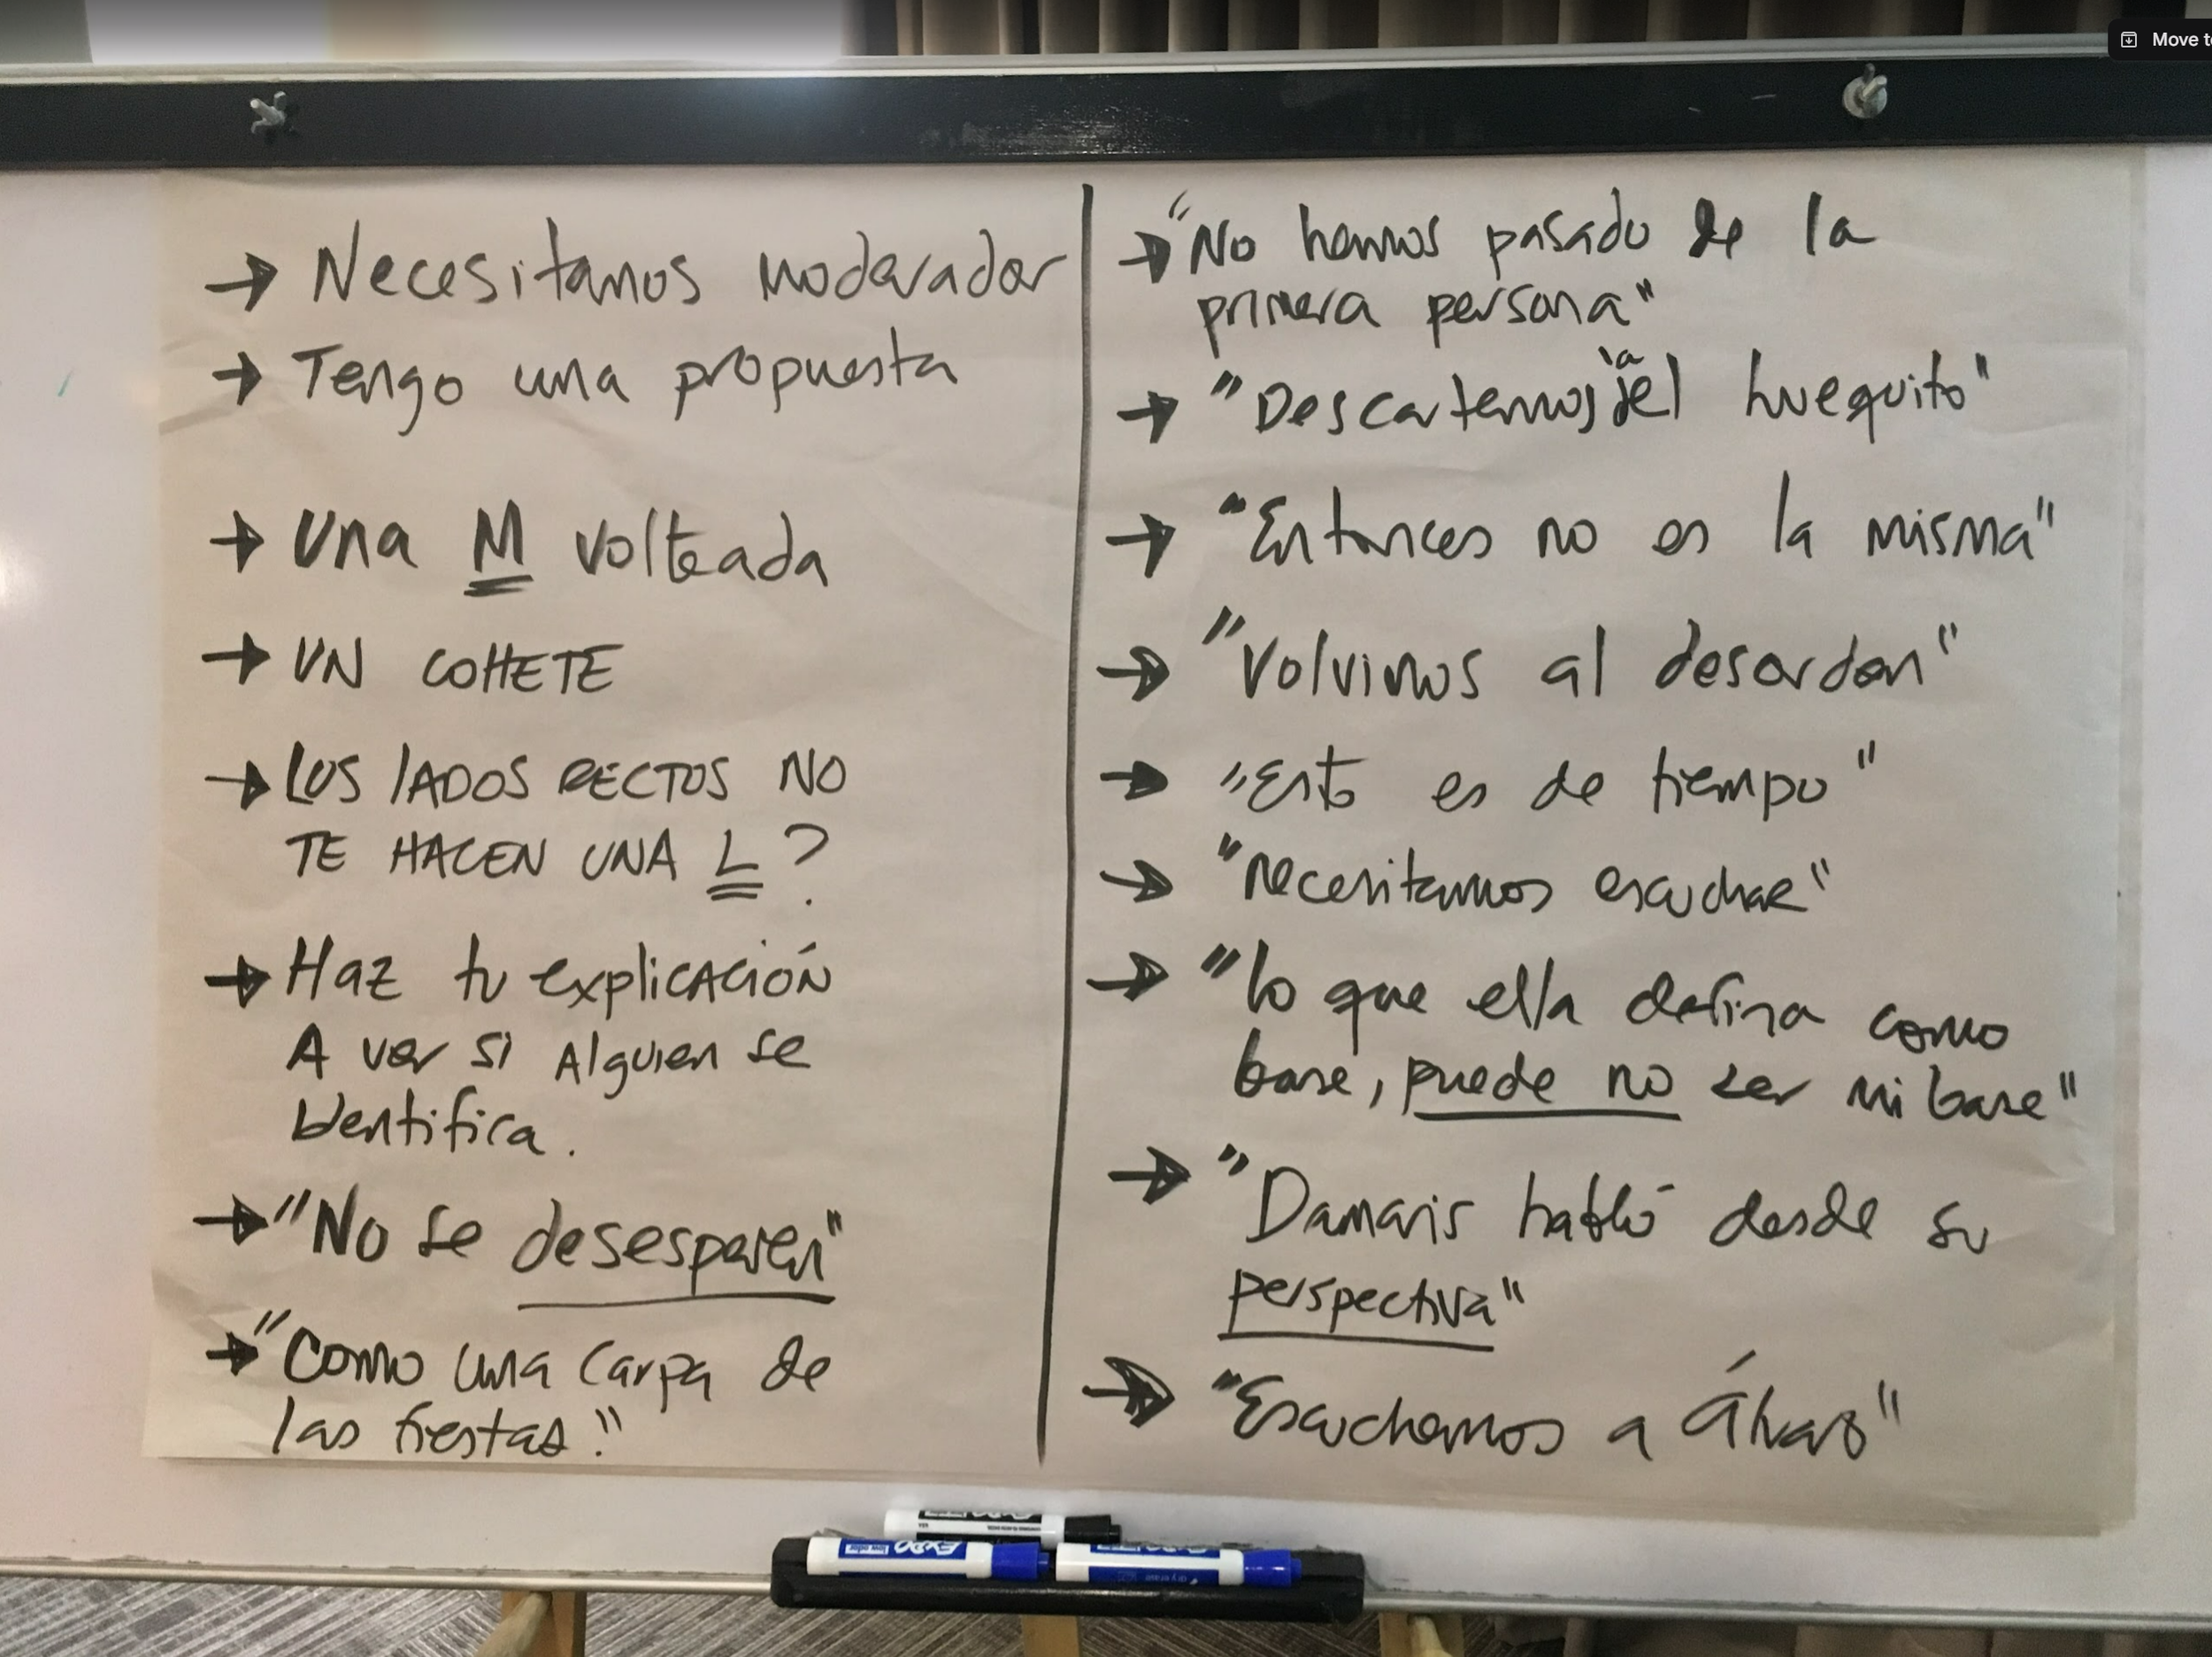 → Necesitamos moderador
→ Tengo una propuesta
→ Una M volteada
→ UN COHETE
→ LOS LADOS RECTOS NO
TE HACEN UNA L ?
→ Haz tu explicACIÓN
A ver si Alguien se
identifica.
→ "No se desesperen"
→ "Como una Carpa de
las fiestas."
→ "No hemos pasado de la
primera persona"
→ "Descartemos a la del huequito"
→ "Entonces no es la misma"
→ "Volvimos al desorden"
→ "Esto es de tiempo"
→ "necesitamos escuchar"
→ "lo que ella defina como
base, puede no ser mi base"
→ "Damaris habló desde su
perspectiva"
→ "Escuchemos a Álvaro"
Move
EXPO
low odor